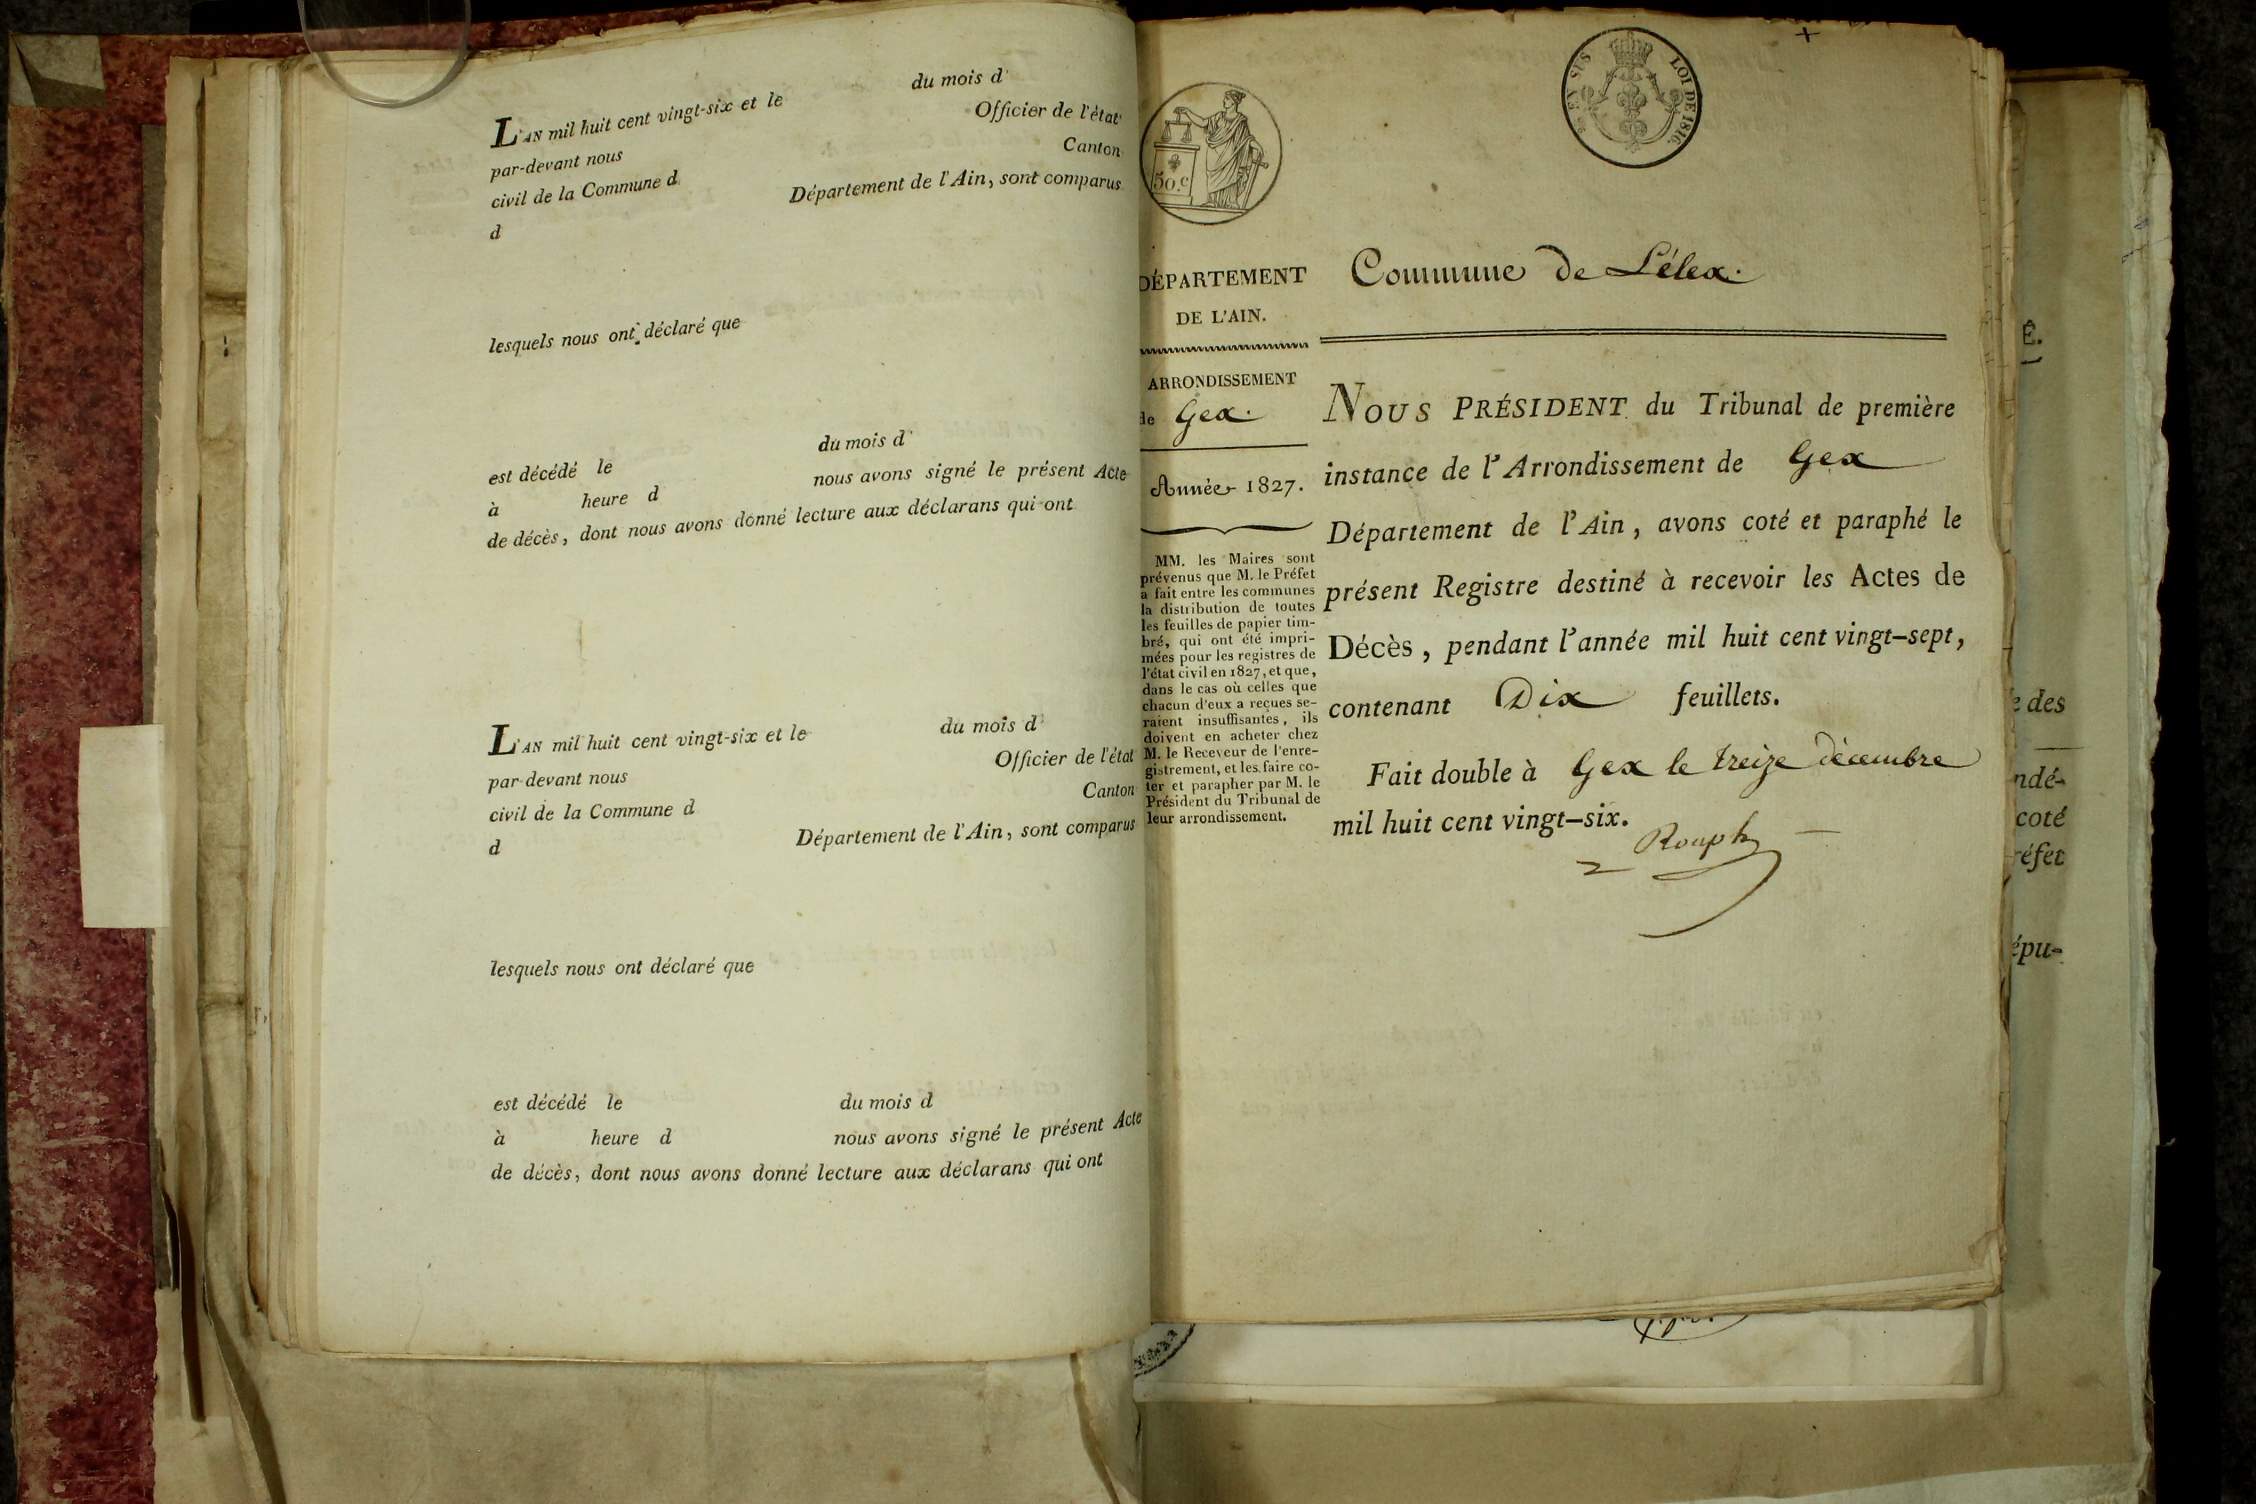 L'AN mil huit cent vingt-six et le du mois d
par-devant nous Officier de l'état
civil de la Commune d Canton
d Département de l'Ain, sont comparus
lesquels nous ont déclaré que
est décédé le du mois d
à heure d nous avons signé le présent Acte
de décès, dont nous avons donné lecture aux déclarans qui ont
L'AN mil huit cent vingt-six et le du mois d
par-devant nous Officier de l'état
civil de la Commune d Canton
d Département de l'Ain, sont comparus
lesquels nous ont déclaré que
est décédé le du mois d
à heure d nous avons signé le présent Acte
de décès, dont nous avons donné lecture aux déclarans qui ont
50.c
LOI DE 1816.
DÉPARTEMENT
DE L'AIN.
ARRONDISSEMENT
de Gex.
Année 1827.
MM. les Maires sont
prévenus que M. le Préfet
a fait entre les communes
la distribution de toutes
les feuilles de papier tim-
bré, qui ont été impri-
mées pour les registres de
l'état civil en 1827, et que,
dans le cas où celles que
chacun d'eux a reçues se-
raient insuffisantes, ils
doivent en acheter chez
M. le Receveur de l'enre-
gistrement, et les faire co-
ter et parapher par M. le
Président du Tribunal de
leur arrondissement.
Commune de Lélex.
NOUS PRÉSIDENT du Tribunal de première
instance de l'Arrondissement de Gex
Département de l'Ain, avons coté et paraphé le
présent Registre destiné à recevoir les Actes de
Décès, pendant l'année mil huit cent vingt-sept,
contenant Dix feuillets.
Fait double à Gex le treize décembre
mil huit cent vingt-six.
Rouph
Ê.
e des
ndé-
coté
réfet
épu-